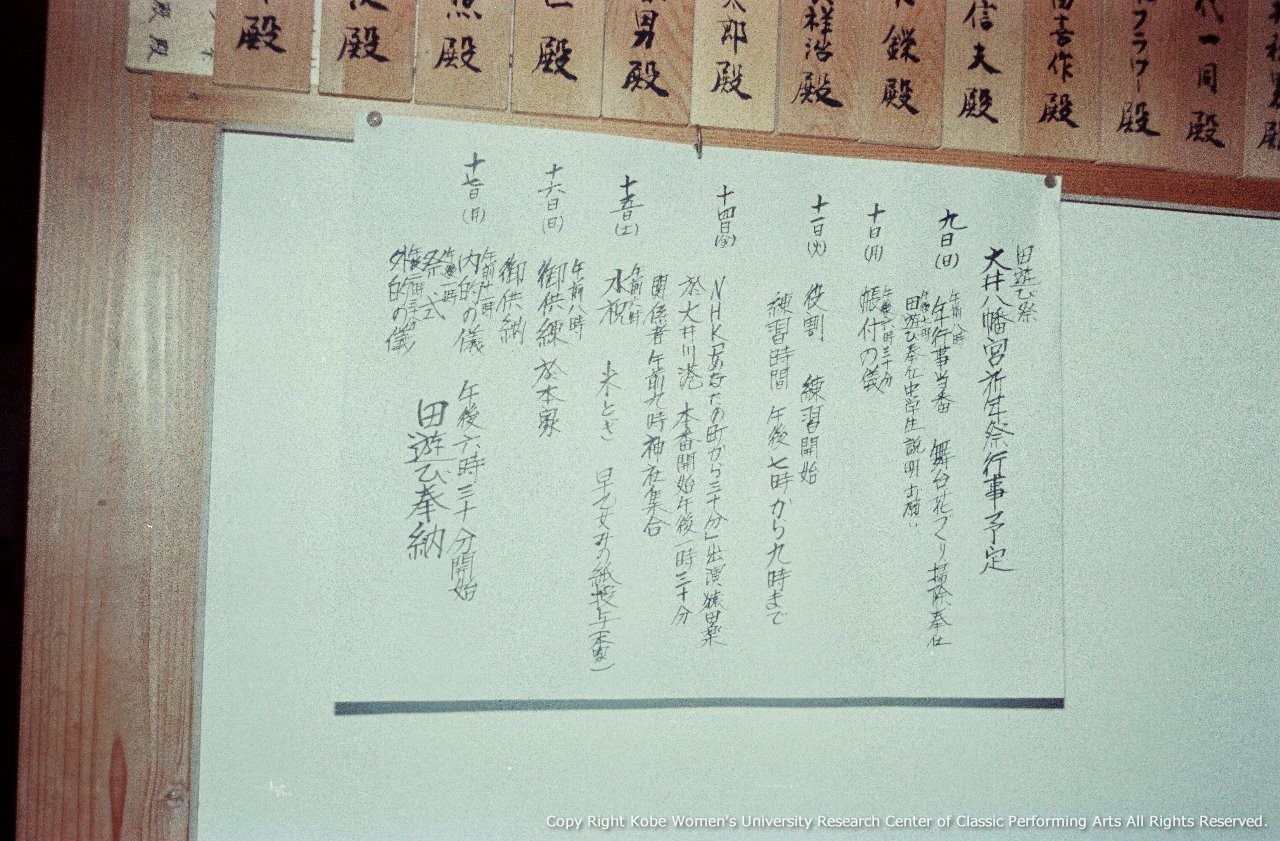 田遊び祭
大井八幡宮祈年祭行事予定
九日(日)
午前八時
年行事当番 舞台花づくり掃除奉仕
田遊び奉仕中学生説明お願い
十日(月)
午後六時三十分
帳付の儀
十一日(火) 役割 練習開始
練習時間 午後七時から九時まで
十四日(金) NHK「あなたの町から三十分」出演猿田楽
於大井川港 本番開始午後一時三十分
関係者午前九時神社集合
十五日(土)
水祝 米とぎ 早乙女の紙授与(本家)
十六日(日)
午前八時
御供練 於本家
御供納
十七日(月)
内的の儀 午後六時三十分開始
祭式 田遊び奉納
外的の儀
殿
殿
殿
殿
男殿
太郎殿
祥治殿
殿
信夫殿
喜作殿
フラワー殿
代一同殿
Copy Right Kobe Women's University Research Center of Classic Performing Arts All Rights Reserved.